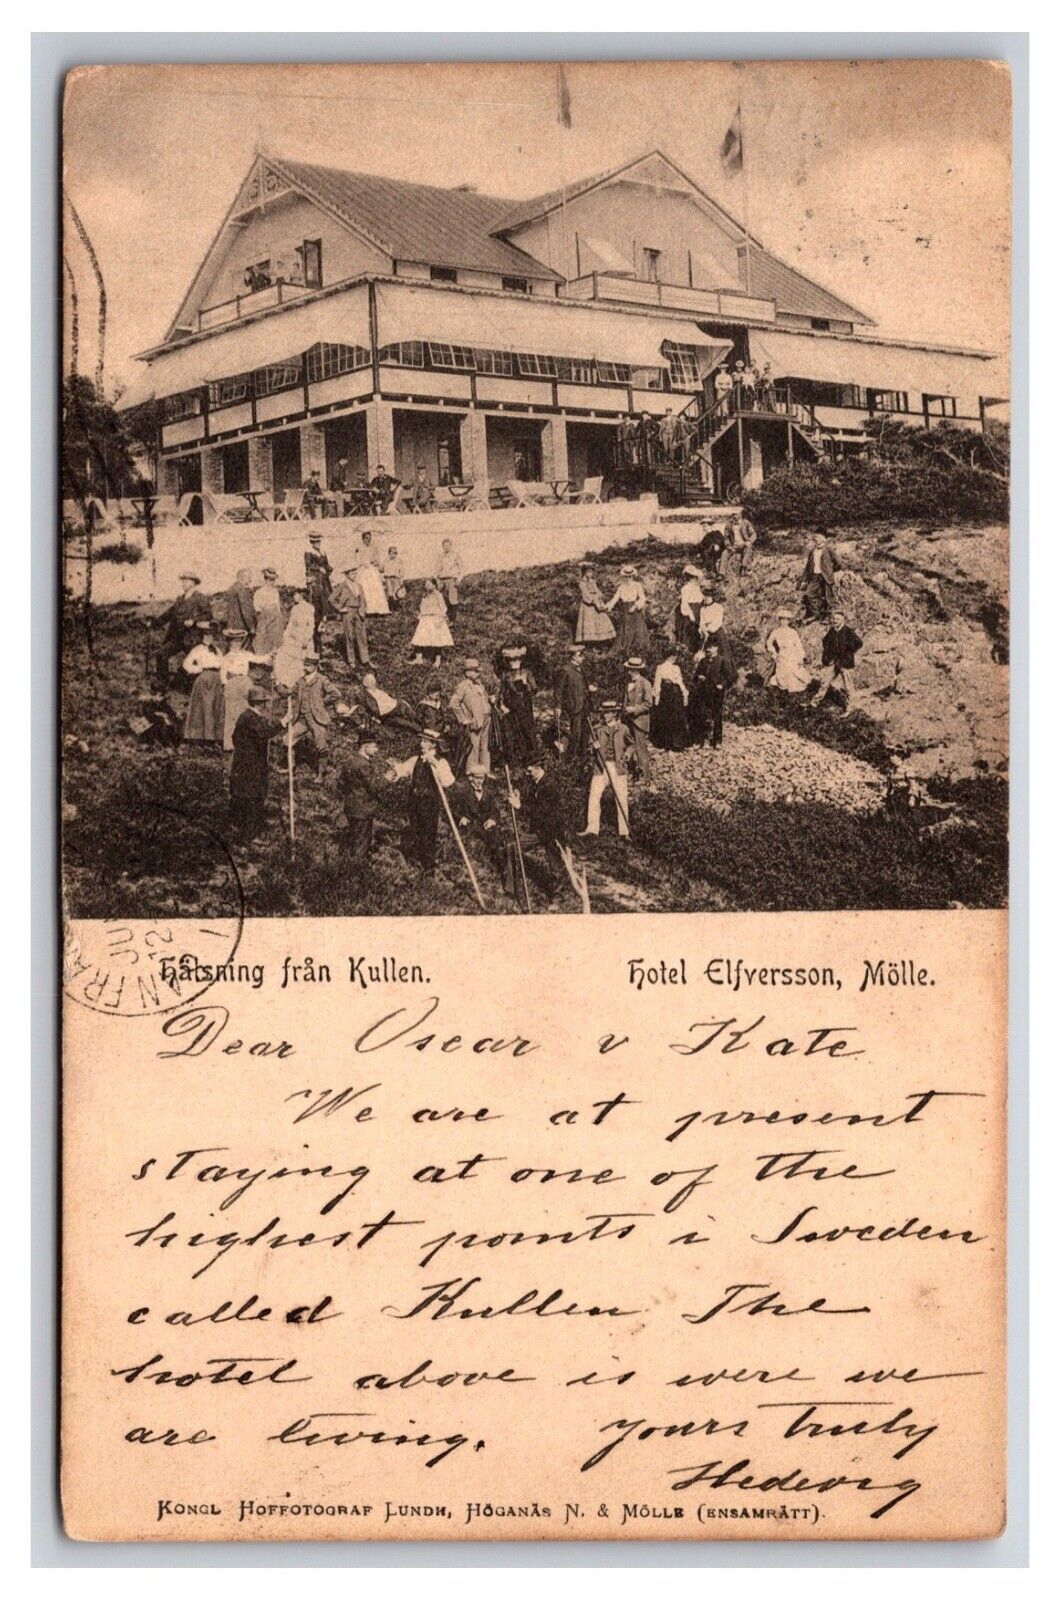 Hälsning från Kullen. Hotel Elfversson, Mölle.
AN FRAN
JU
12
Dear Oscar v Kate
We are at present
staying at one of the
highest points i Sweden
called Kullen. The
hotel above is were we
are living. yours truly
Hedevig
KONGL HOFFOTOGRAF LUNDH, HÖGANÄS N. & MÖLLE (ENSAMRÄTT).